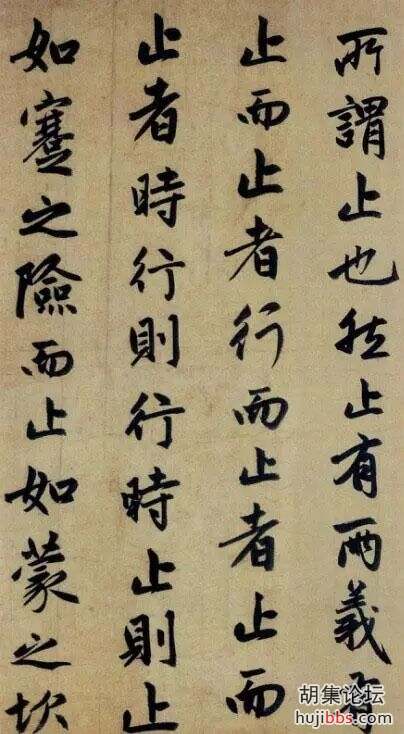 所謂止也然止有兩義有
止而止者行而止者止而
止者時行則行時止則止
如蹇之險而止如蒙之坎
胡集论坛
hujibbs.com